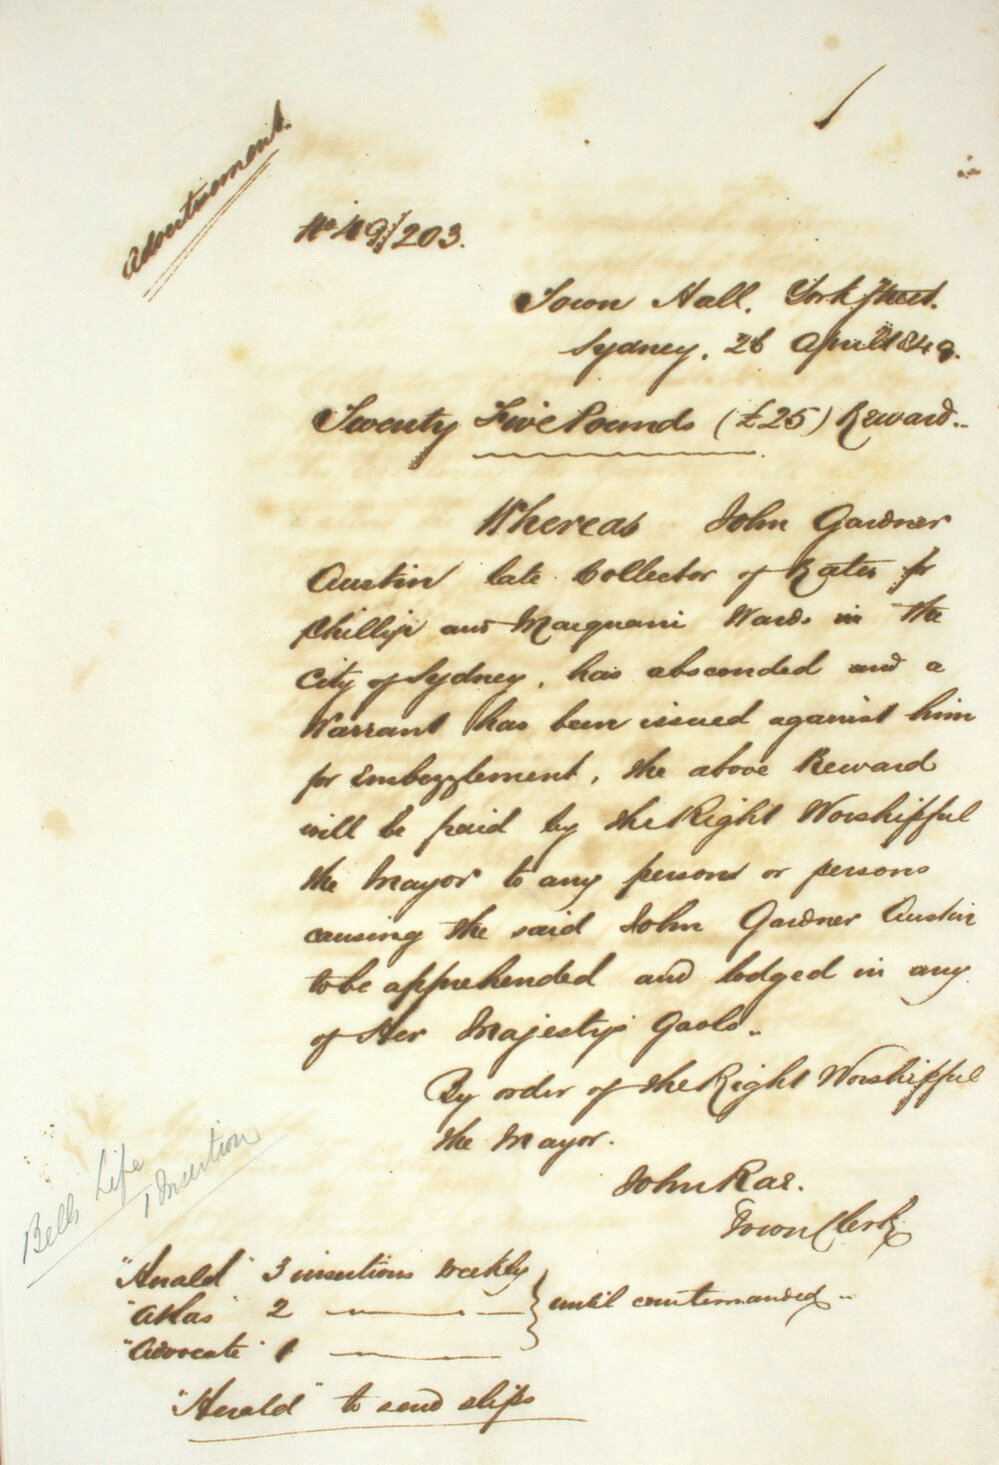 Advertisement.
No 49/203.
Town Hall. York Street.
Sydney. 26 April 1849.
Twenty Five Pounds (£25) Reward..
Whereas John Gardner
Austin late Collector of Rates for
Phillip and Macquarie Wards in the
City of Sydney, has absconded and a
Warrant has been issued against him
for Embezzlement, the above Reward
will be paid by the Right Worshipful
the Mayor to any person or persons
causing the said John Gardner Austin
to be apprehended and lodged in any
of Her Majesty's Gaols..
By order of the Right Worshipful
the Mayor.
John Rae.
Town Clerk
Bells Life
1 Insertion
"Herald" 3 insertions weekly
"Atlas" 2 — — } until countermanded..
"Advocate" 1 —
"Herald" to send slips